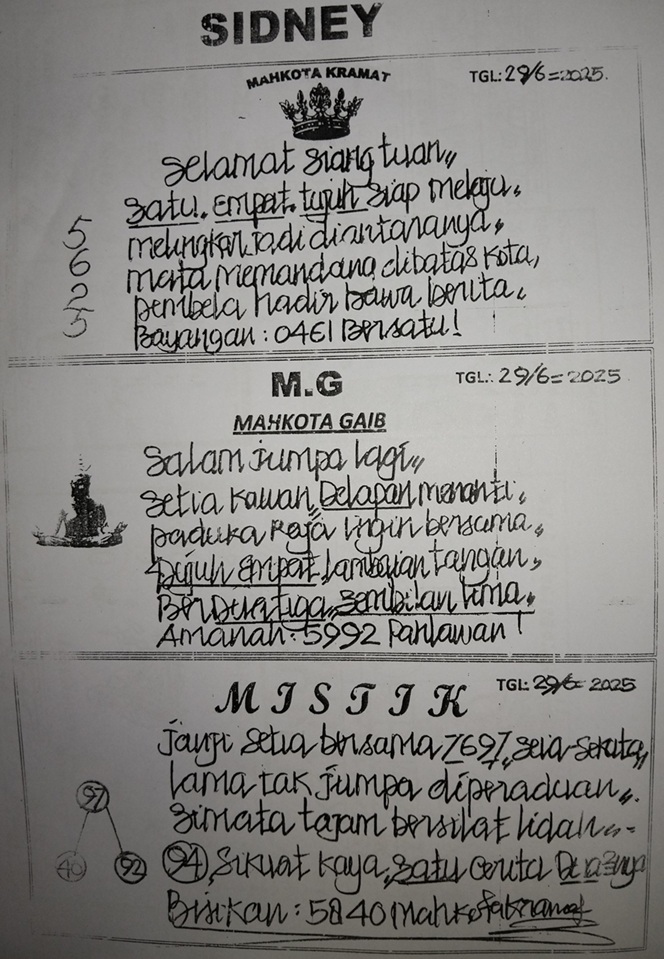 SIDNEY
MAHKOTA KRAMAT
TGL: 29/6=2025.
Selamat siang tuan,,
Satu. Empat. tujuh siap melaju.
5 melingkar jadi diantaranya,
6 mata memandang dibatas kota,
2 pembela hadir bawa berita.
5 Bayangan : 0461 Bersatu!
M.G
TGL.: 29/6=2025
MAHKOTA GAIB
Salam jumpa lagi,,
Setia kawan, Delapan menanti.
paduka Raja ingin bersama.
Tujuh Empat lambaian tangan,
Ber Dua tiga, Sembilan lima,
Amanah: 5992 Pahlawan!
MISTIK
TGL: 29/6= 2025
Janji Setia bersama 7697, seia-Sekata,,
lama tak jumpa diperaduan,,.
Simata tajam bersilat lidah
97
40 92 94, Sikuat Kaya, Satu Cerita
Bisikan : 5840